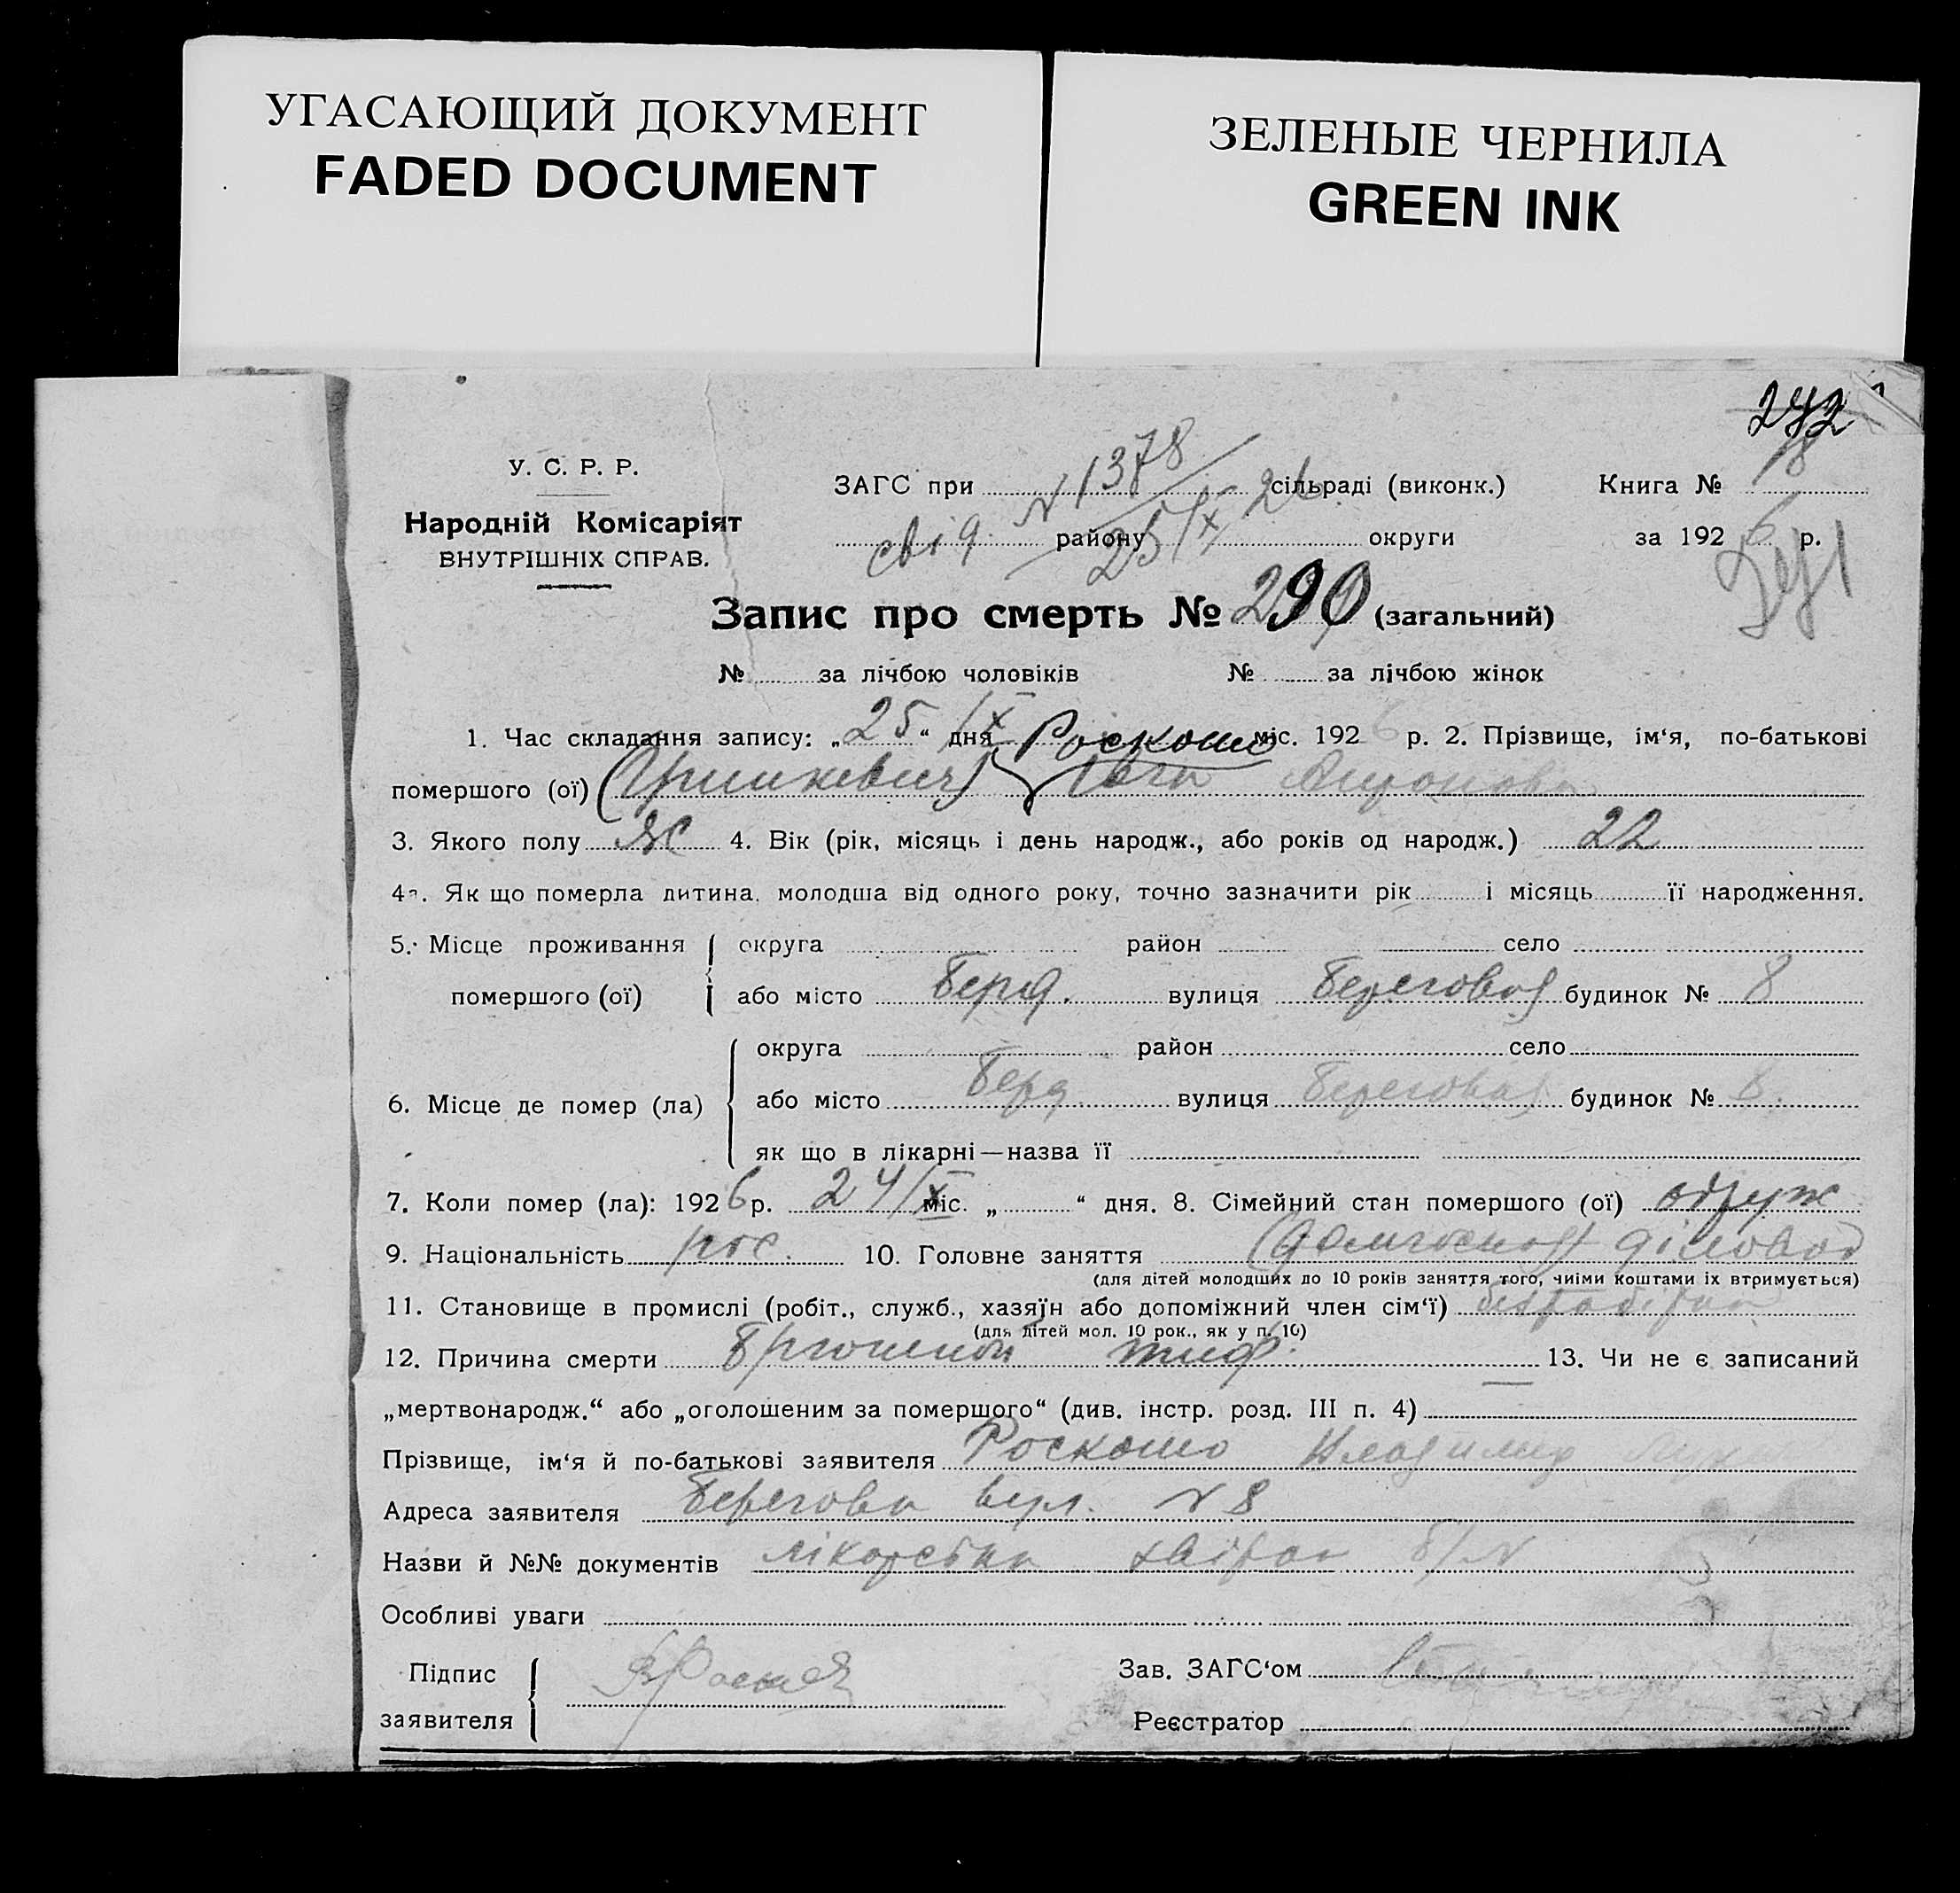 УГАСАЮЩИЙ ДОКУМЕНТ
FADED DOCUMENT
ЗЕЛЕНЫЕ ЧЕРНИЛА
GREEN INK
У. С. Р. Р.
Народній Комісаріят
ВНУТРІШНІХ СПРАВ.
ЗАГС при N 1378 сільраді (виконк.)
свід. району 25/IX 26 округи
Книга № 18
за 1926 р.
Запис про смерть № 290 (загальний)
№ за лічбою чоловіків № за лічбою жінок
1. Час складання запису: „25“ дня IX Роскошо міс. 1926 р. 2. Прізвище, ім‘я, по-батькові
помершого (ої) (Гришкевич)
3. Якого полу Ж 4. Вік (рік, місяць і день народж., або років од народж.) 22
4а. Як що померла дитина, молодша від одного року, точно зазначити рік і місяць її народження.
5. Місце проживання округа район село
помершого (ої) або місто Берд. вулиця Береговая будинок № 8
округа район село
6. Місце де помер (ла) або місто Берд вулиця Береговая будинок № 8
як що в лікарні — назва її
7. Коли помер (ла): 1926 р. 24/IX міс. „ “ дня. 8. Сімейний стан помершого (ої) одруж
9. Національність рос. 10. Головне заняття діловод
(для дітей молодших до 10 років заняття того, чиїми коштами їх втримується)
11. Становище в промислі (робіт., служб., хазяїн або допоміжний член сім‘ї)
(для дітей мол. 10 рок., як у п. 10)
12. Причина смерти Брюшной тиф. 13. Чи не є записаний
„мертвонародж.“ або „оголошеним за помершого“ (див. інстр. розд. III п. 4)
Прізвище, ім‘я й по-батькові заявителя Роскошо Владимир
Адреса заявителя Берегова вул. N 8
Назви й №№ документів лікарська б/N
Особливі уваги
Підпис
заявителя
Зав. ЗАГС‘ом
Реєстратор